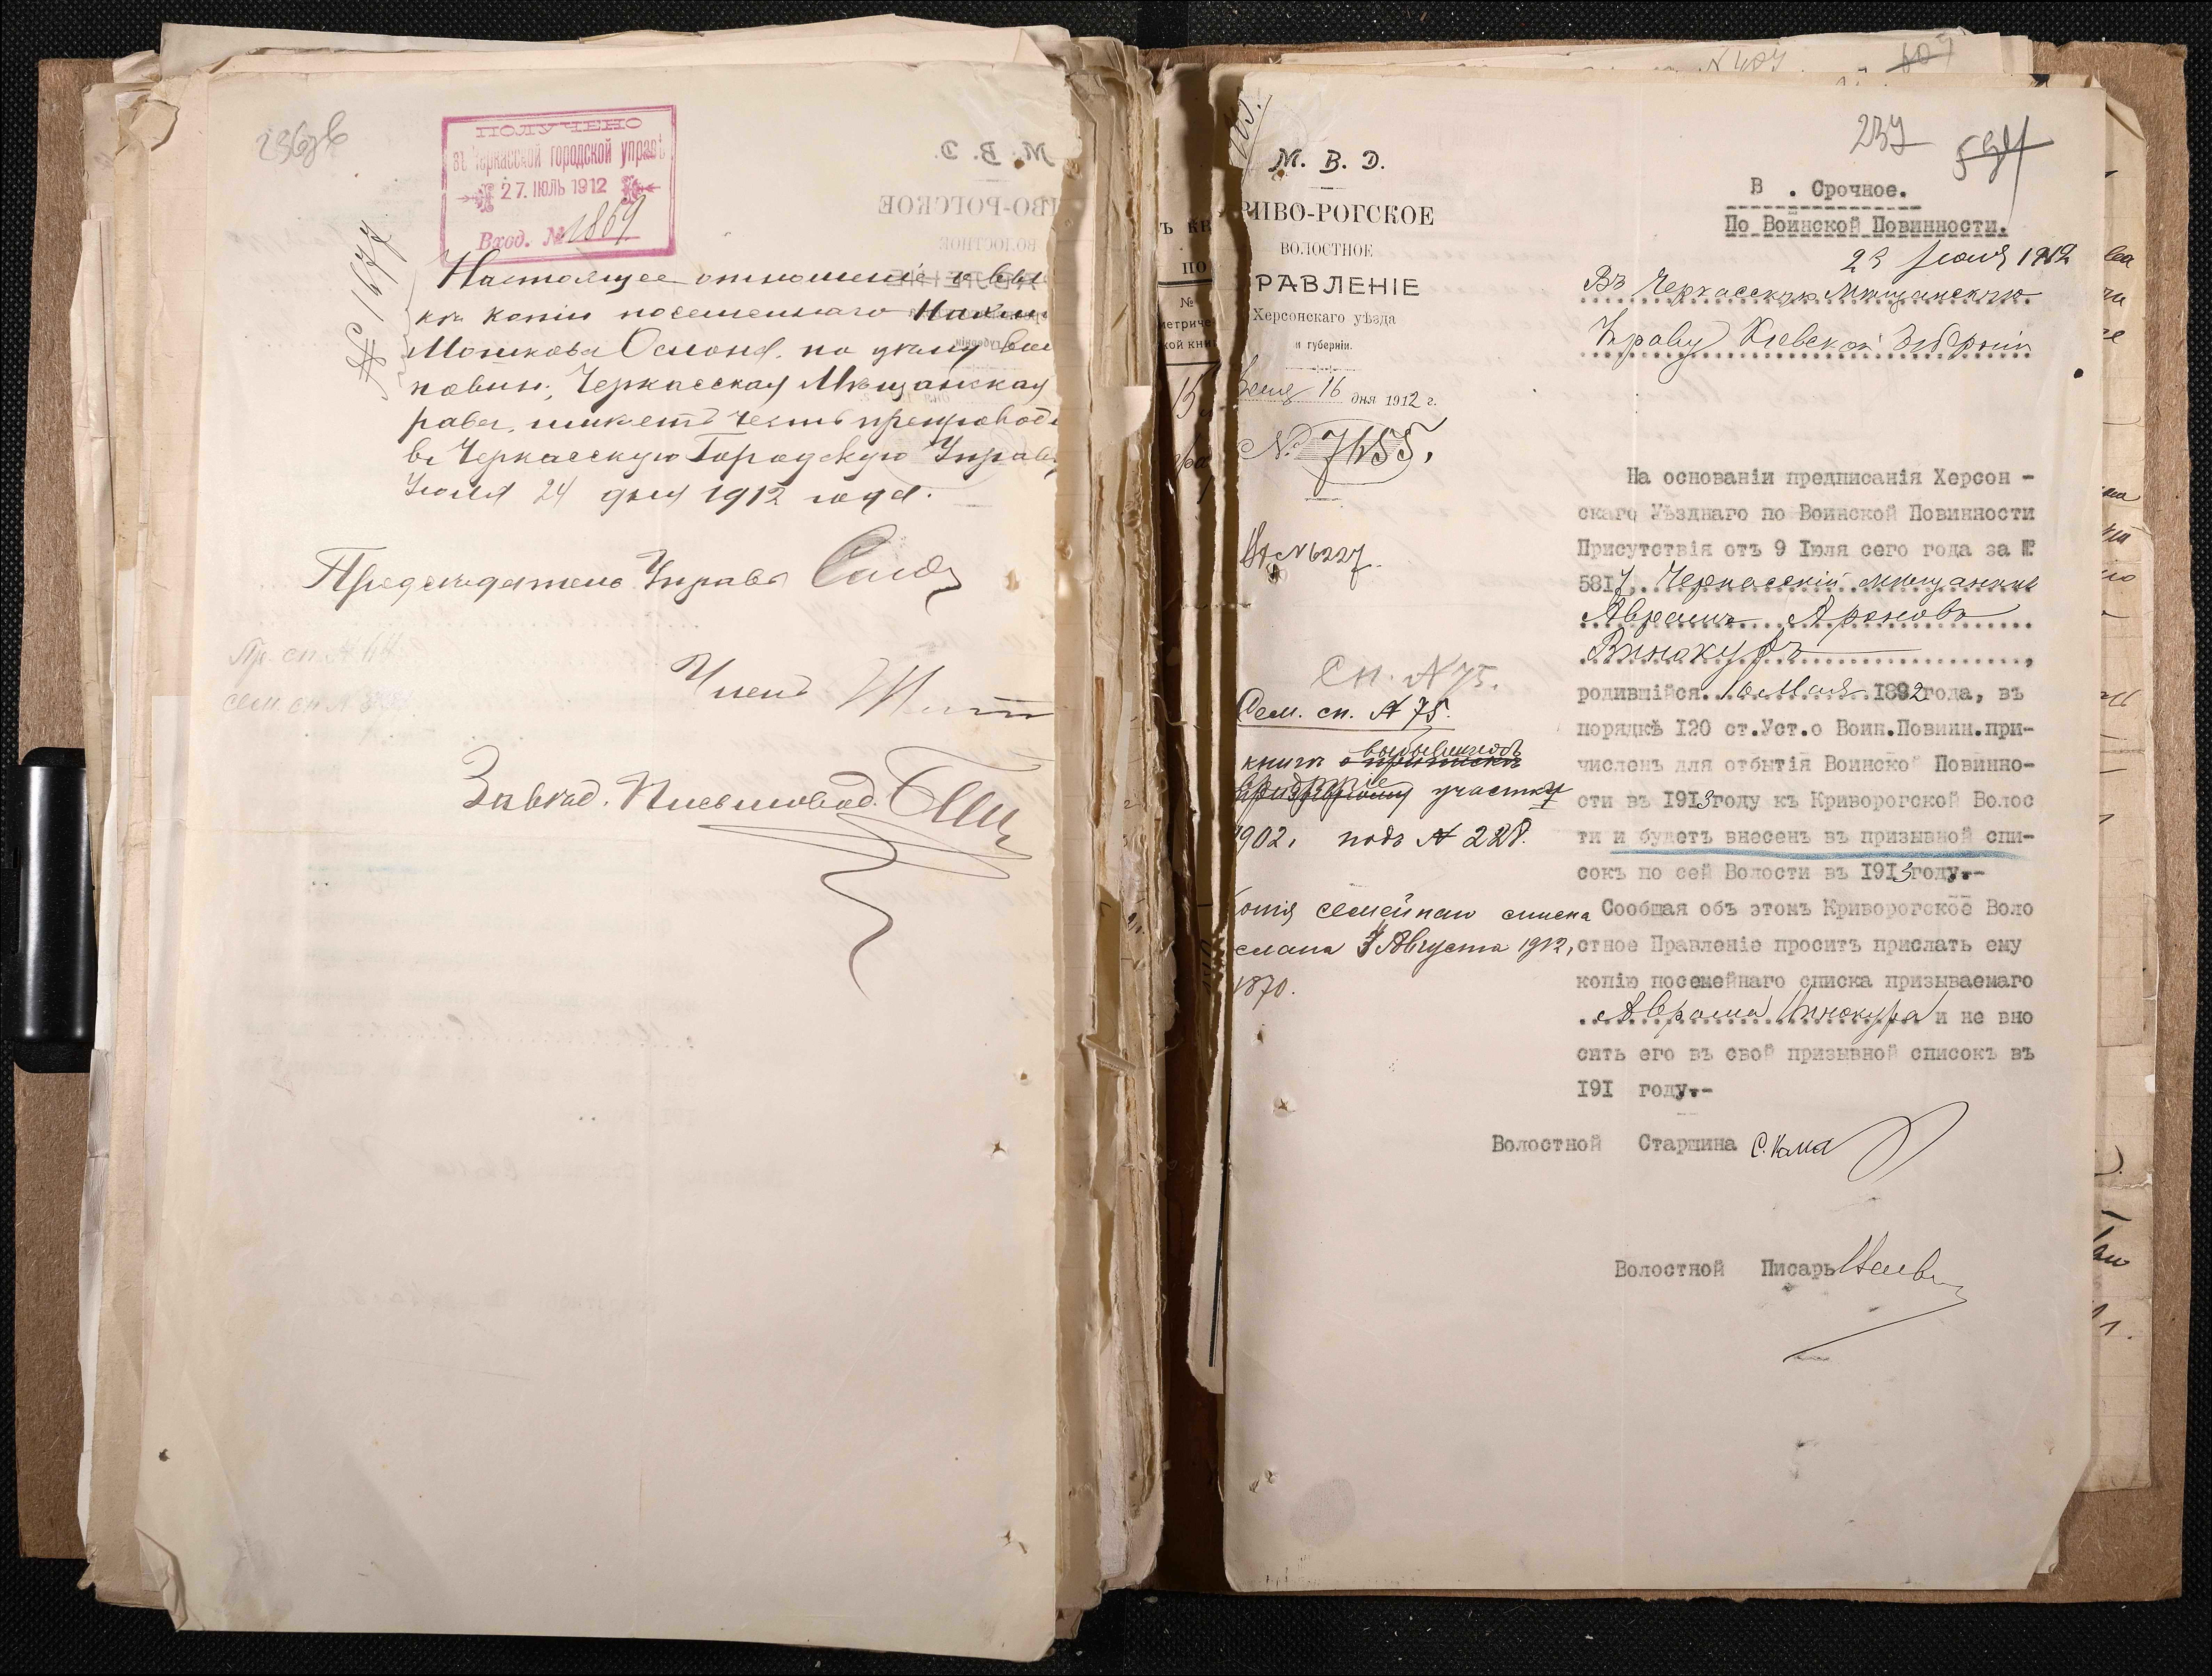 236об
ПОЛУЧЕНО
въ Черкасской городской управѣ
27. ІЮЛЬ 1912
Вход. № 1869
№ 1677
Настоящее отношеніе и
копіи посемейнаго
Мошкова по
повин., Черкасская Мѣщанская
рава, имѣетъ честь препровод
въ Черкасскую Городскую Управ
Іюля 24 дня 1912 года.
Предсѣдатель Управы
Членъ
Завѣд. Письмовод.
237
М. В. Д.
РИВО-РОГСКОЕ
ВОЛОСТНОЕ
РАВЛЕНІЕ
Херсонскаго уѣзда
и губерніи.
16 дня 1912 г.
№ 7455.
Вх. № 6227.
Сп. № 75.
Сем. сп. № 75.
книги выбывшихъ
участку
902. подъ № 228.
опія семейнаго списка
слана 7 Августа 1912,
1870.
В . Срочное.
По Воинской Повинности.
23 Іюля 1912
Въ Черкасскую Мѣщанскую
Управу Кіевской Губерніи
На основаніи предписанія Херсон -
скаго Уѣзднаго по Воинской Повинности
Присутствія отъ 9 Іюля сего года за №
5817, Черкасскій мѣщанинъ
Аврамъ Ароновъ
Винокуръ,
родившійся 16 Мая 1892 года, въ
порядкѣ 120 ст.Уст.о Воин.Повинн.при-
численъ для отбытія Воинской Повинно-
сти въ 1913 году къ Криворогской Волос
ти и будетъ внесенъ въ призывной спи-
сокъ по сей Волости въ 1913 году.-
Сообщая объ этомъ Криворогское Воло
стное Правленіе проситъ прислать ему
копію посемейнаго списка призываемаго
Аврама Винокура и не вно
сить его въ свой призывной списокъ въ
191 году.-
Волостной Старшина
Волостной Писарь